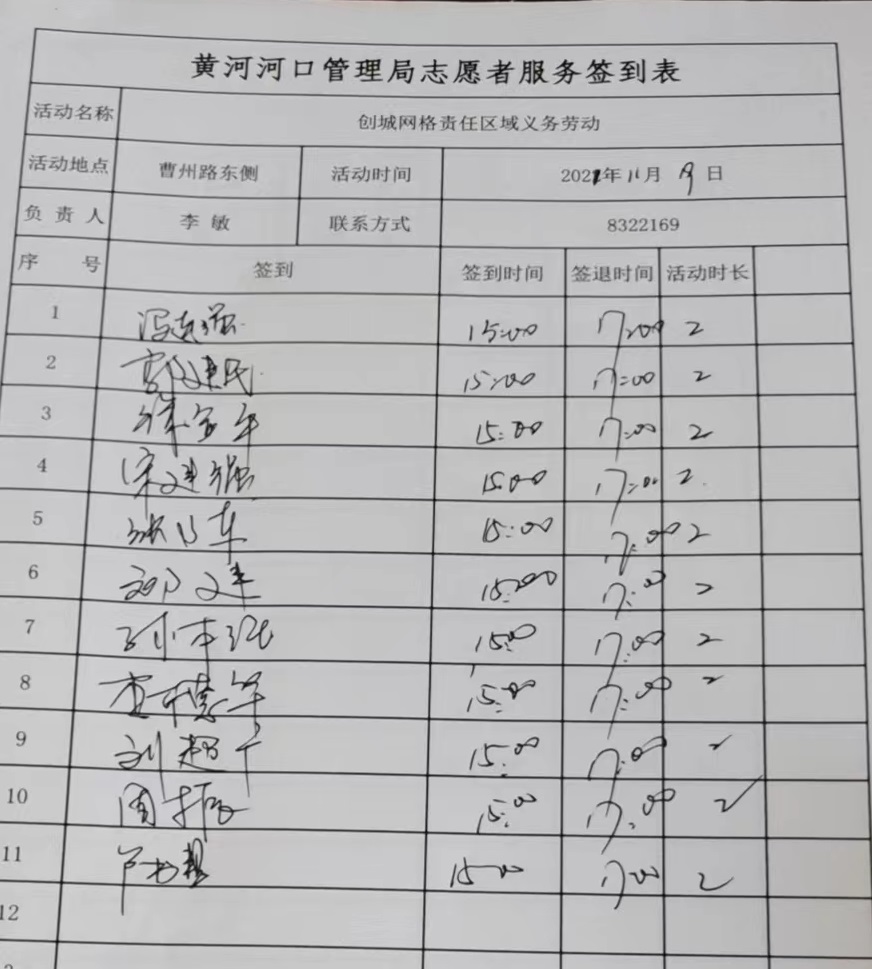 黄河河口管理局志愿者服务签到表
活动名称 创城网格责任区域义务劳动
活动地点 曹州路东侧 活动时间 2021年11月9日
负责人 李敏 联系方式 8322169
序号 签到 签到时间 签退时间 活动时长
1 15:00 17:00 2
2 郭建民 15:00 17:00 2
3 15:00 17:00 2
4 宋建强 15:00 17:00 2
5 15:00 17:00 2
6 邓文建 15:00 17:00 2
7 15:00 17:00 2
8 15:00 17:00 2
9 刘超 15:00 17:00 2
10 周振 15:00 17:00 2
11 15:00 17:00 2
12